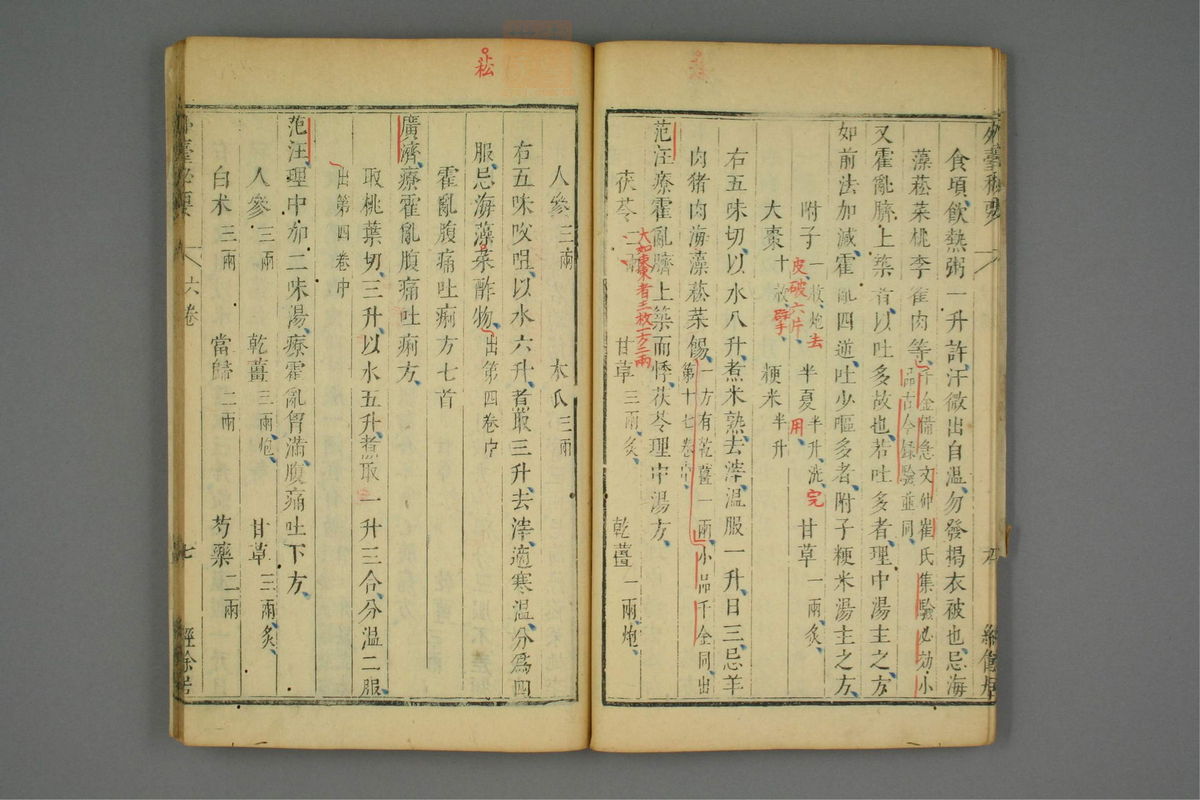 外臺秘要
經餘居
食頃飲熱粥一升許汗微出自溫勿發揭衣被也忌海
藻菘菜桃李雀肉等千金備急文仲崔氏集驗必効小
品古今錄驗並同
又霍亂臍上築者以吐多故也若吐多者理中湯主之方
如前法加減霍亂四逆吐少嘔多者附子粳米湯主之方
附子一枚炮去
皮破六片
半夏半升洗完
用
甘草一兩炙
大棗十枚擘
粳米半升
右五味切以水八升煮米熟去滓溫服一升日三忌羊
肉猪肉海藻菘菜餳一方有乾薑一兩小品千金同出
第十七卷中
范汪療霍亂臍上築而悸茯苓理中湯方
茯苓二兩
甘草三兩炙
乾薑一兩炮
大如棗者三枚一方二兩
人參三兩
木瓜三兩
右五味㕮咀以水六升煮取三升去滓適寒溫分爲四
服忌海藻菜酢物出第四卷中
菘
霍亂腹痛吐痢方七首
廣濟療霍亂腹痛吐痢方
取桃葉切三升以水五升煮取一升三合分溫二服
出第四卷中
范汪理中加二味湯療霍亂胷滿腹痛吐下方
人參三兩
乾薑三兩炮
甘草三兩炙
白术三兩
當歸二兩
芍藥二兩
外臺秘要
六卷
七
經餘居